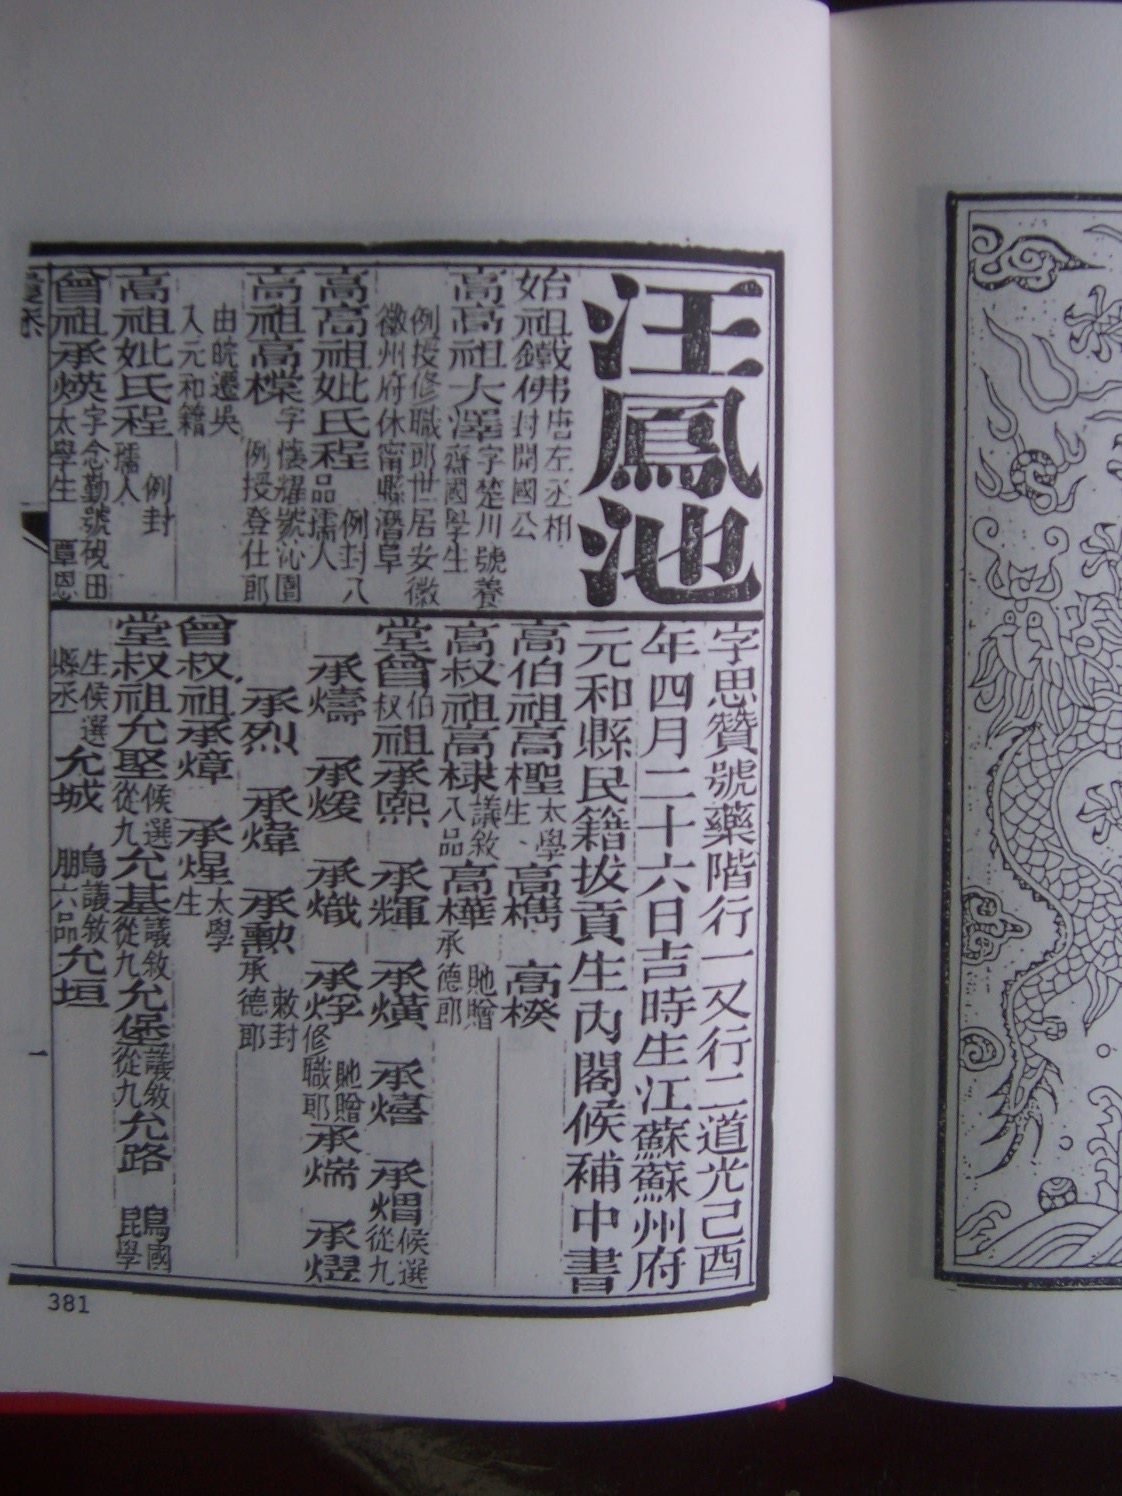 汪鳳池
字思贊號藥階行一又行二道光己酉
年四月二十六日吉時生江蘇蘇州府
元和縣民籍拔貢生內閣候補中書
始祖鐵佛唐左丞相封開國公
高高祖大澤字楚川號養齋國學生
例授修職郎世居安徽徽州府休甯縣潛阜
高高祖妣氏程例封八品孺人
高祖高㯹字懷耀號沁園例授登仕郎
由皖遷吳入元和籍
高祖妣氏程例封孺人
曾祖承煐字念勤號硯田太學生 覃恩
高伯祖高檉太學生、高檇 高楑
高叔祖高棣議敘八品高樺貤贈承德郎
堂曾伯叔祖承熙 承輝 承熿 承熺 承熠候選從九
承燾 承煖 承熾 承烰貤贈修職郎承煓 承熤
承烈 承煒 承勳敕封承德郎
曾叔祖承燑 承煋太學生
堂叔祖允堅候選從九允基議敘從九允堡議敘從九允路 鵾國學
生候選縣丞允城 鵬議敘六品允垣
一
381